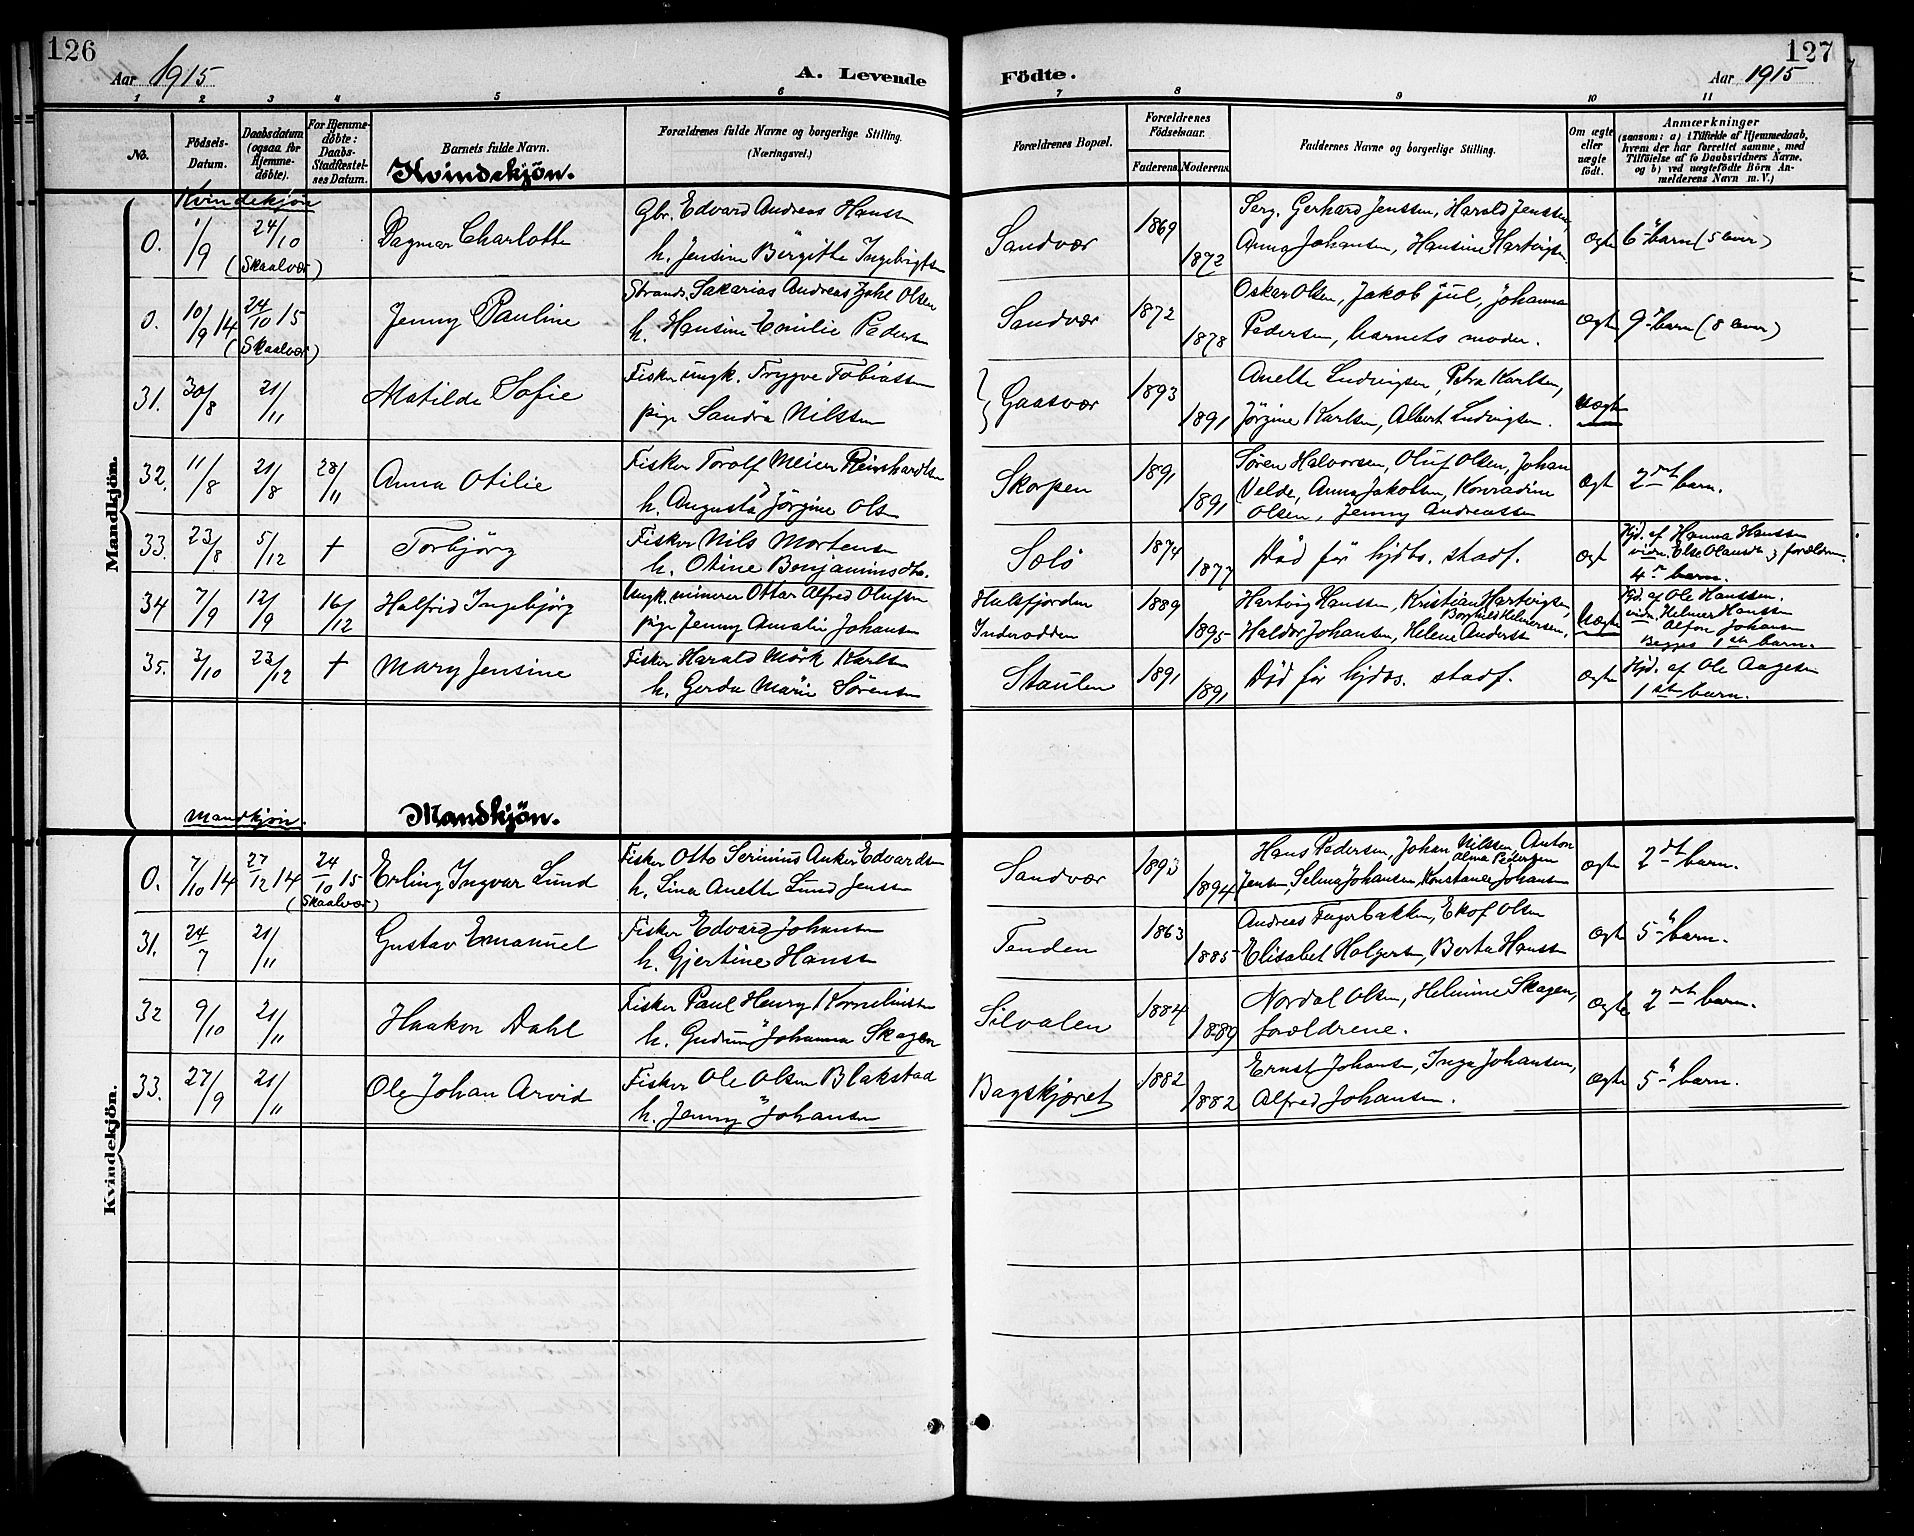 126
Aar 1915
A. Levende
Födte.
127
Aar 1915
1 2 3 4 5 6 7 8 9 10 11
No.
Födsels-Datum.
Daabsdatum (ogsaa for Hjemmedöbte).
For Hjemmedöbte: Daabs-Stadfæstelses Datum.
Barnets fulde Navn.
Forældrenes fulde Navne og borgerlige Stilling.
(Næringsvei.)
Forældrenes Bopæl.
Forældrenes Födselsaar.
Faderens. Moderens.
Faddernes Navne og borgerlige Stilling.
Om ægte eller uægte födt.
Anmærkninger
(saasom: a) i Tilfælde af Hjemmedaab, hvem der har forrettet samme, med Tilföielse af to Daabsvidners Navne, og b) ved uægtefödte Börn Anmelderens Navn m. V.)
Kvindekjön.
Kvindekjøn
Mandkjön.
0. 1/9 24/10 (Skaalvær) Dagmar Charlotte Gbr. Edvard Andreas Hanssn Sandvær 1869 Serg. Gerhard Jenssen, Harald Jenssen, Ægte 6te barn (5 lever)
h. Jensine Birgitte Ingebrigtsn 1872 Anna Johansen, Hansine Hartvigsn
0. 10/9 14 24/10 15 (Skaalvær) Jenny Pauline Strands. Sakarias Andreas Johl Olsen Sandvær 1872 Oskar Olsen, Jakob Jul, Johanna Ægte 9de barn (8 lever)
h. Hansine Emilie Pedersn 1878 Pedersen, barnets moder.
31. 30/8 21/11 Matilde Sofie Fisker ungk. Trygve Tobiassen Gaasvær 1893 Anette Ludvigsen, Petra Karlsen, Uægte
pige Sandra Nilssen 1891 Jørgine Karlsen, Albert Ludvigsen.
32. 11/8 21/8 28/11 Anna Otilie Fisker Torolf Meier Reinhardtsn Skorpen 1891 Søren Halvorsen, Oluf Olsen, Johan Ægt 2det barn.
h. Augusta Jörgine Olsn 1891 Velde, Anna Jakobsen, Konradine
Olsen, Jenny Andreassen
33. 23/8 5/12 + Torbjörg Fisker Nils Mortensn Solö 1874 Död för hjdbs. stadf. Ægt Hjd. af Hanna Hanssn
h. Otine Benjaminsdtr. 1877 vidn. Else Olausdtr. og forældrene
4de barn.
34 7/9 12/9 16/12 Halfrid Ingebjörg Ungk. minerer Ottar Alfred Olufsen Halsfjorden 1889 Hartvig Hanssen, Kristian Hartvigsen, Uægte Hjd. af Ole Hanssen.
Borghild Helmersen,
pige Jenny Amalie Johansn Inderodden 1895 Haldor Johansen, Helene Anderssn vidn. Helmer Hanssen
Alfon Johansn
Begges 1ste barn.
35. 3/10 23/12 + Mary Jensine Fisker Harald Mörk Karlsn Staulen 1891 Död för hjdbs. stadf. Ægte Hjd. af Ole Aagesen
h. Gerda Marie Sörensen 1891 1ste barn.
Mandkjøn.
Mandkjön.
Kvindekjön.
0. 7/10 14 27/12 14 24/10 15 (Skaalvær) Erling Ingvar Lund Fisker Otto Serinius Anker Edvardsn Sandvær 1893 Hans Pedersen, Johan Nilssen, Anton Ægte 2det barn.
Alma Pedersen
h. Lina Anette Lund Jenssn 1894 Jensen, Selma Johansen, Konstanse Johansn
31. 24/7 21/11 Gustav Emanuel Fisker Edvard Johansn Tenden 1863 Andreas Fagerbakken, Ekof Olsen Ægte 5te barn.
h. Gjertine Hanssn 1885 Elisabet Holgersn, Berta Hanssn
32 9/10 21/11 Haakon Dahl Fisker Paul Henry Korneliussn Silvalen 1884 Nordal Olsen, Helmine Skagen, Ægte 2det barn.
h. Gudrun Johanna Skagen 1889 forældrene.
33. 27/9 21/11 Ole Johan Arvid Fisker Ole Olsen Blakstad Bagskjæret 1882 Ernst Johansn, Inga Johansen, Ægte 5te barn.
h. Jenny Johansn 1882 Alfred Johansen.